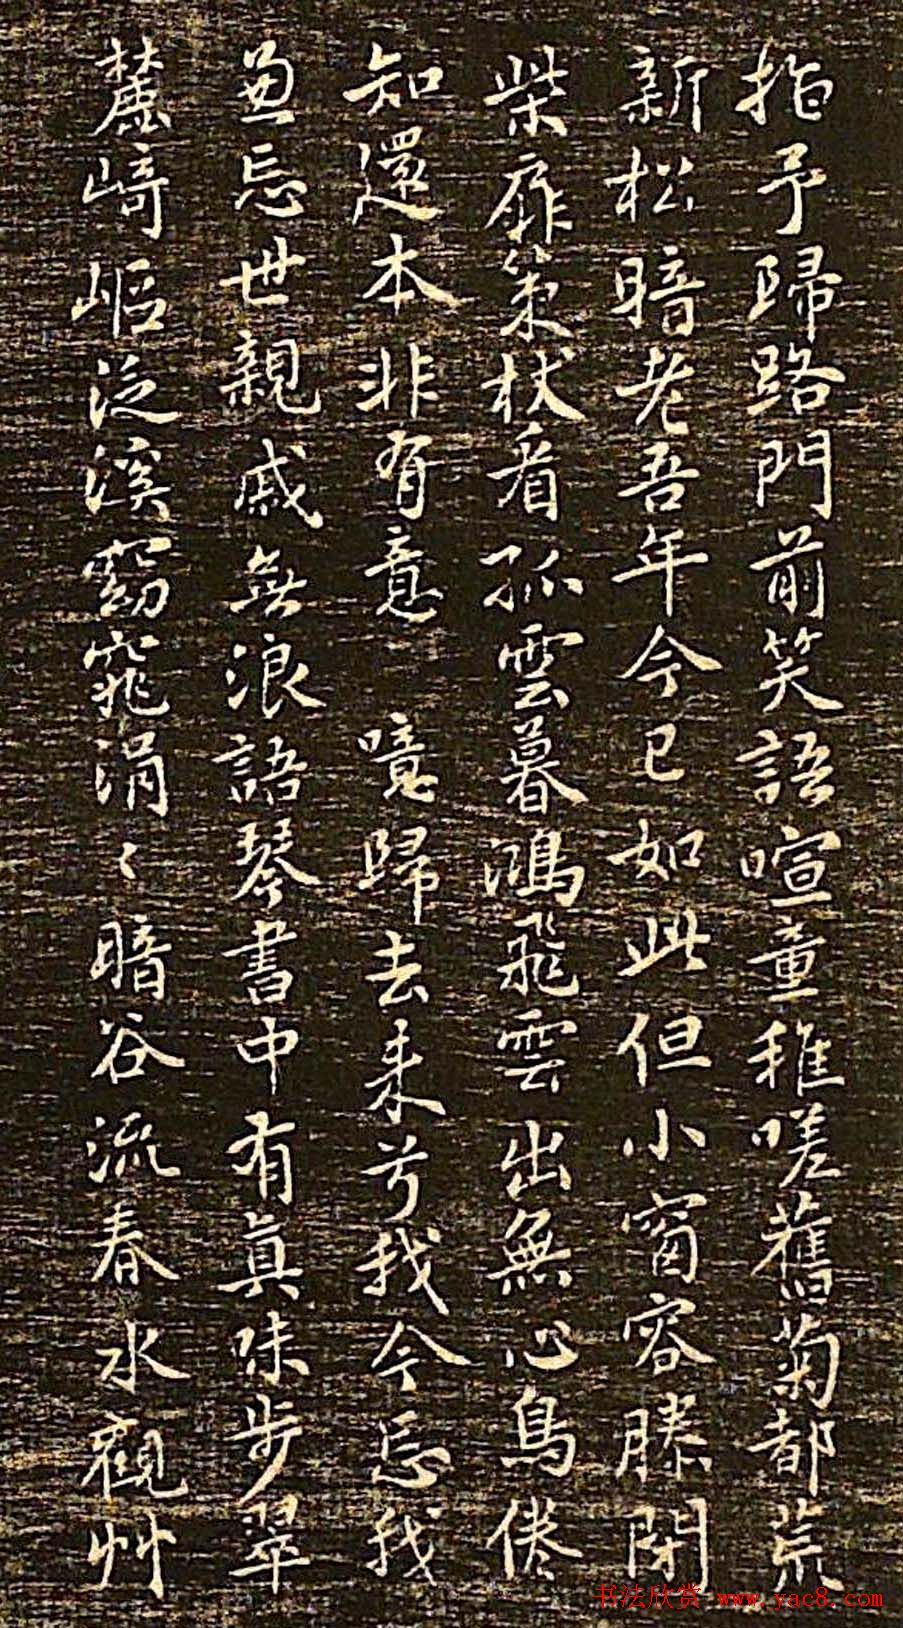 指予歸路門前笑語喧童稚嗟舊菊都荒
新松暗老吾年今已如此但小窗容膝閉
柴扉策杖看孤雲暮鴻飛雲出無心鳥倦
知還本非有意 噫歸去來兮我今忘我
兼忘世親戚無浪語琴書中有真味步翠
麓崎嶇泛溪窈窕涓〻暗谷流春水觀艸
书法欣赏 www.yac8.com